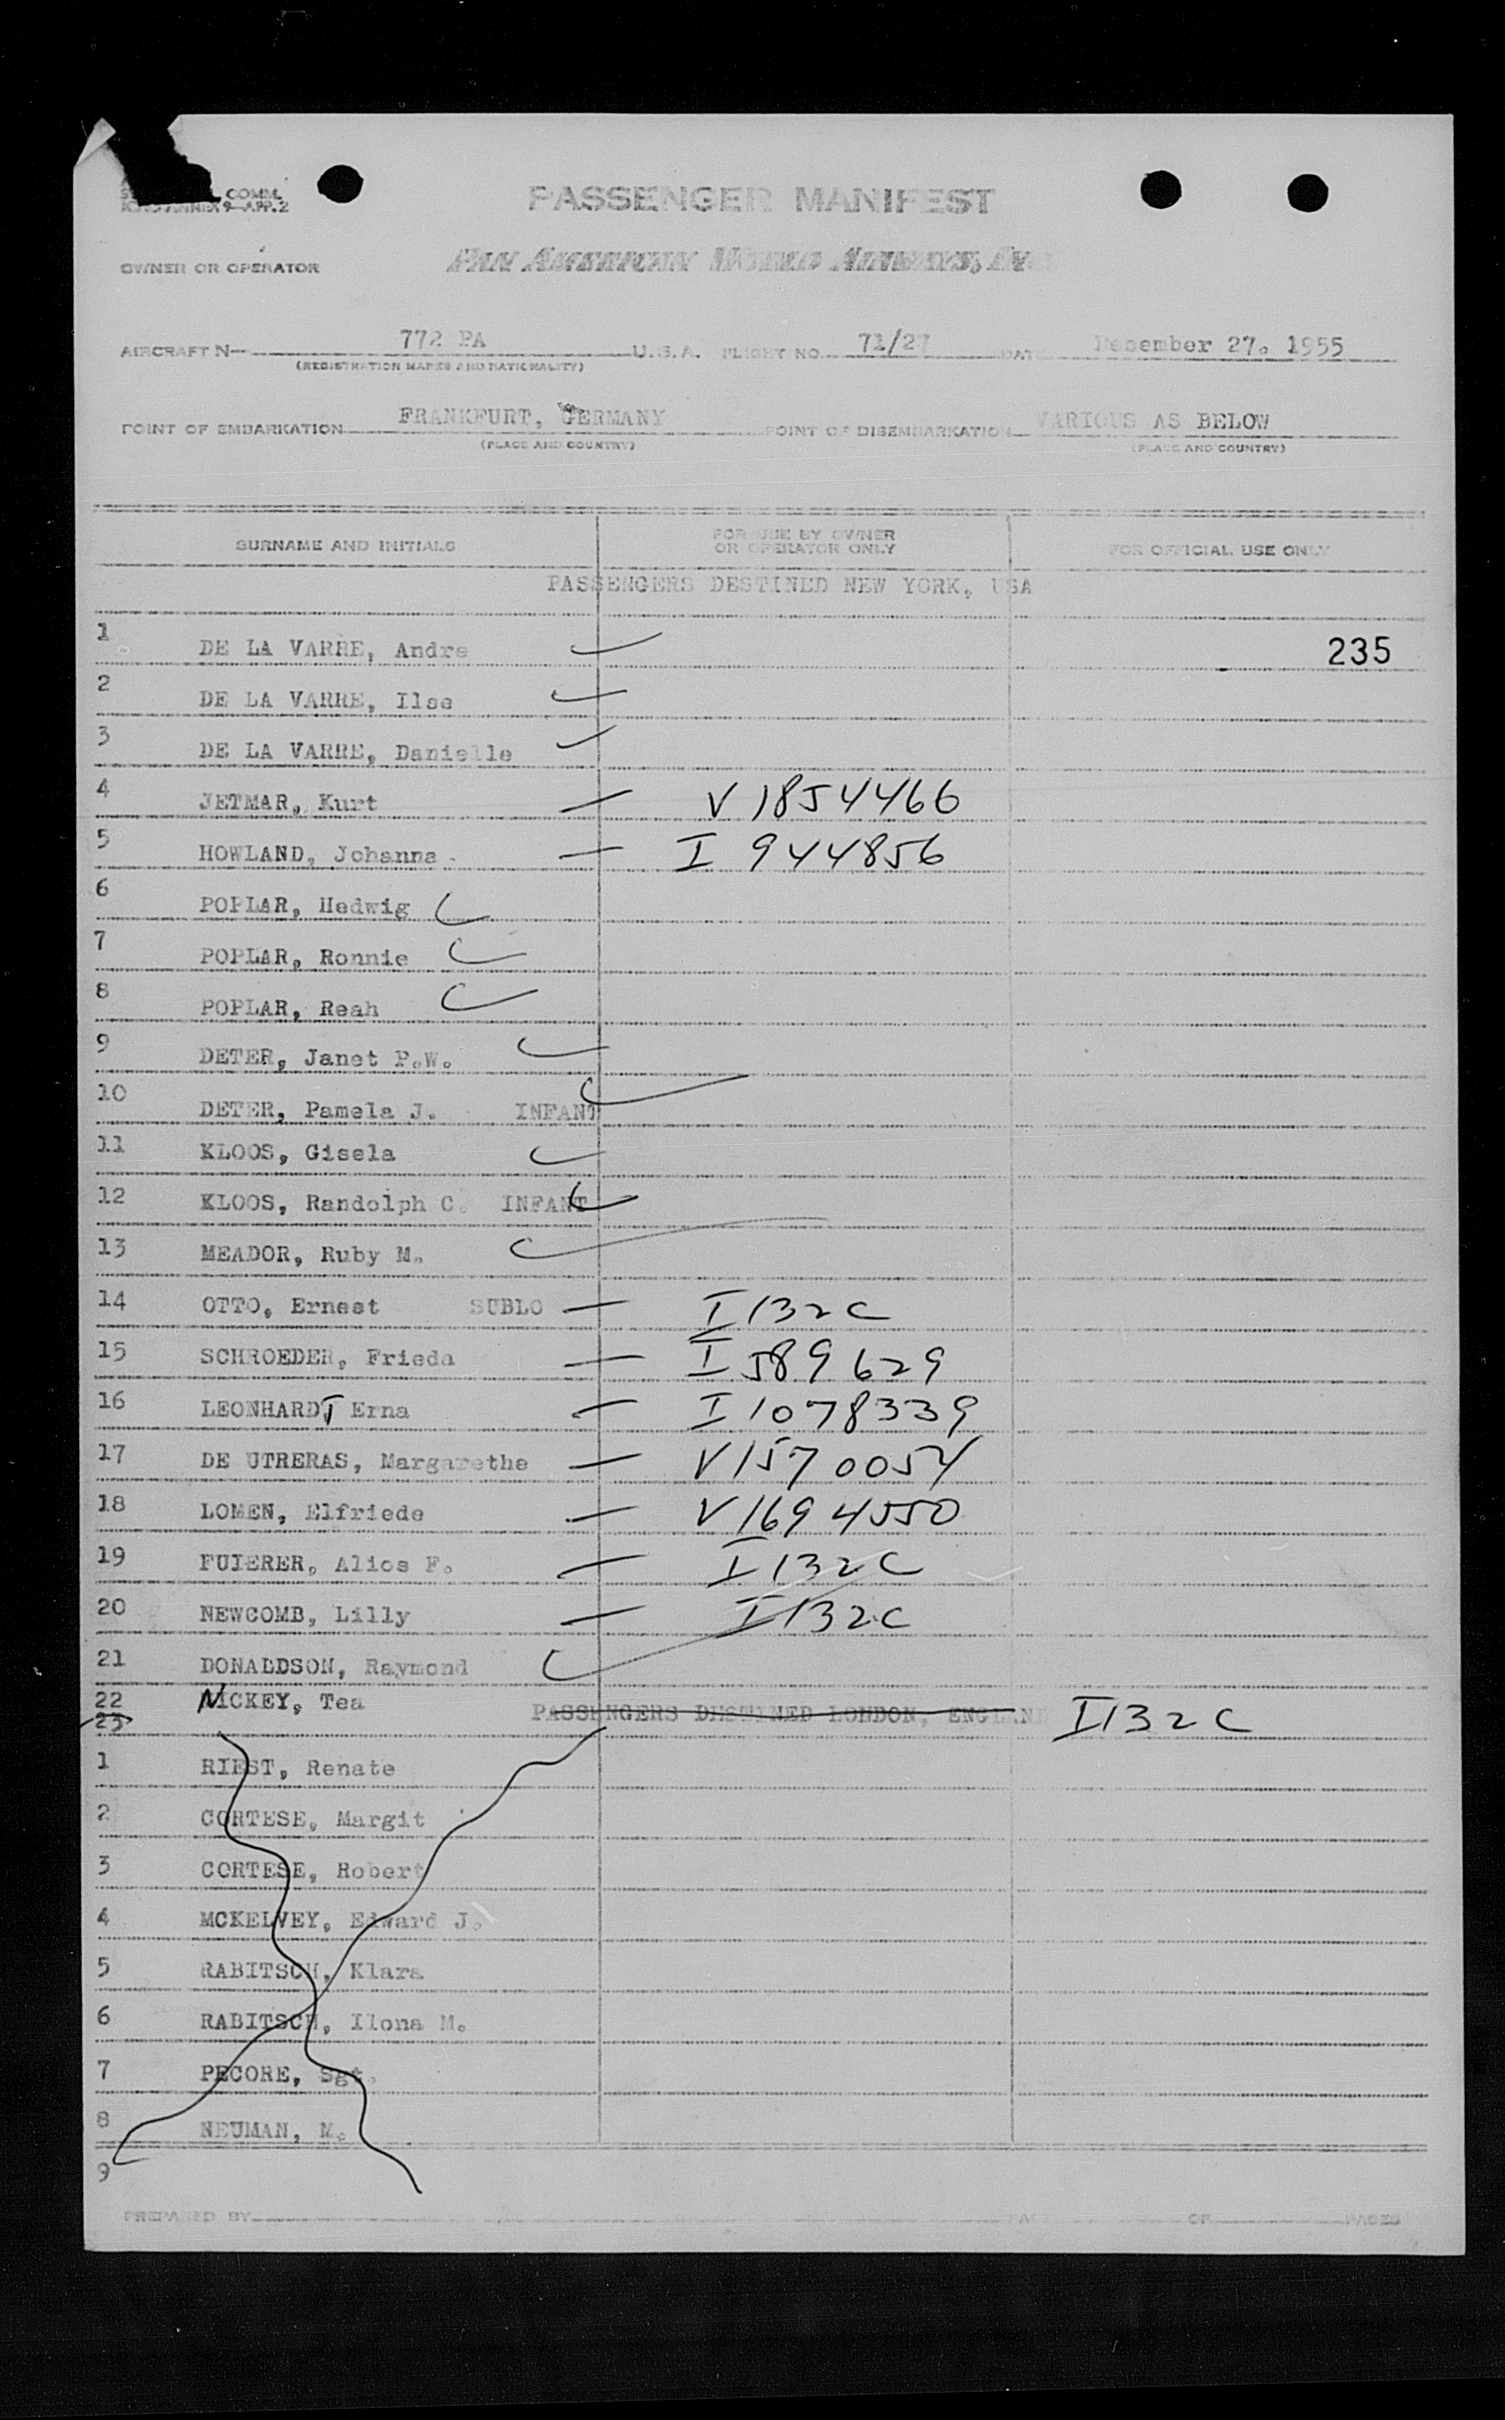 COMM.
ANNEX 9—APP. 2
PASSENGER MANIFEST
OWNER OR OPERATOR
PAN AMERICAN WORLD AIRWAYS, INC
AIRCRAFT N— 772 PA U.S.A. FLIGHT NO. 71/27 DATE December 27. 1955
(REGISTRATION MARKS AND NATIONALITY)
POINT OF EMBARKATION FRANKFURT, GERMANY POINT OF DISEMBARKATION VARIOUS AS BELOW
(PLACE AND COUNTRY) (PLACE AND COUNTRY)
SURNAME AND INITIALS FOR USE BY OWNER OR OPERATOR ONLY FOR OFFICIAL USE ONLY
PASSENGERS DESTINED NEW YORK, USA
1 DE LA VARRE, Andre 235
2 DE LA VARRE, Ilse
3 DE LA VARRE, Danielle
4 JETMAR, Kurt — V 1854466
5 HOWLAND, Johanna — I 944856
6 POPLAR, Hedwig
7 POPLAR, Ronnie
8 POPLAR, Reah
9 DETER, Janet P.W.
10 DETER, Pamela J. INFANT
11 KLOOS, Gisela
12 KLOOS, Randolph C. INFANT
13 MEADOR, Ruby M.
14 OTTO, Ernest SUBLO — I 132 C
15 SCHROEDER, Frieda — I 589 629
16 LEONHARDT, Erna — I 1078339
17 DE UTRERAS, Margarethe — V 1570054
18 LOMEN, Elfriede — V 1694550
19 FUIERER, Alios F. — I 132 C
20 NEWCOMB, Lilly — I 132 C
21 DONALDSON, Raymond
22 NICKEY, Tea PASSENGERS DESTINED LONDON, ENGLAND I 132 C
23
1 RIEST, Renate
2 CORTESE, Margit
3 CORTESE, Robert
4 MCKELVEY, Edward J.
5 RABITSCH, Klara
6 RABITSCH, Ilona M.
7 PECORE, Sgt.
8 NEUMAN, M.
9
PREPARED BY PAGE OF PAGES